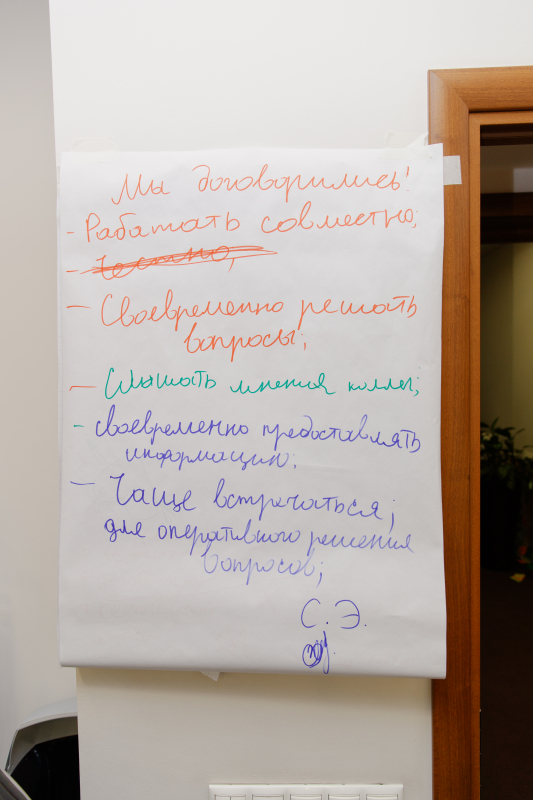 Мы договорились!
- Работать совместно;
- Честно,
- Своевременно решать
вопросы;
- Слышать мнения коллег;
- своевременно предоставлять
информацию;
- Чаще встречаться;
для оперативного решения
вопросов;
С. Э.